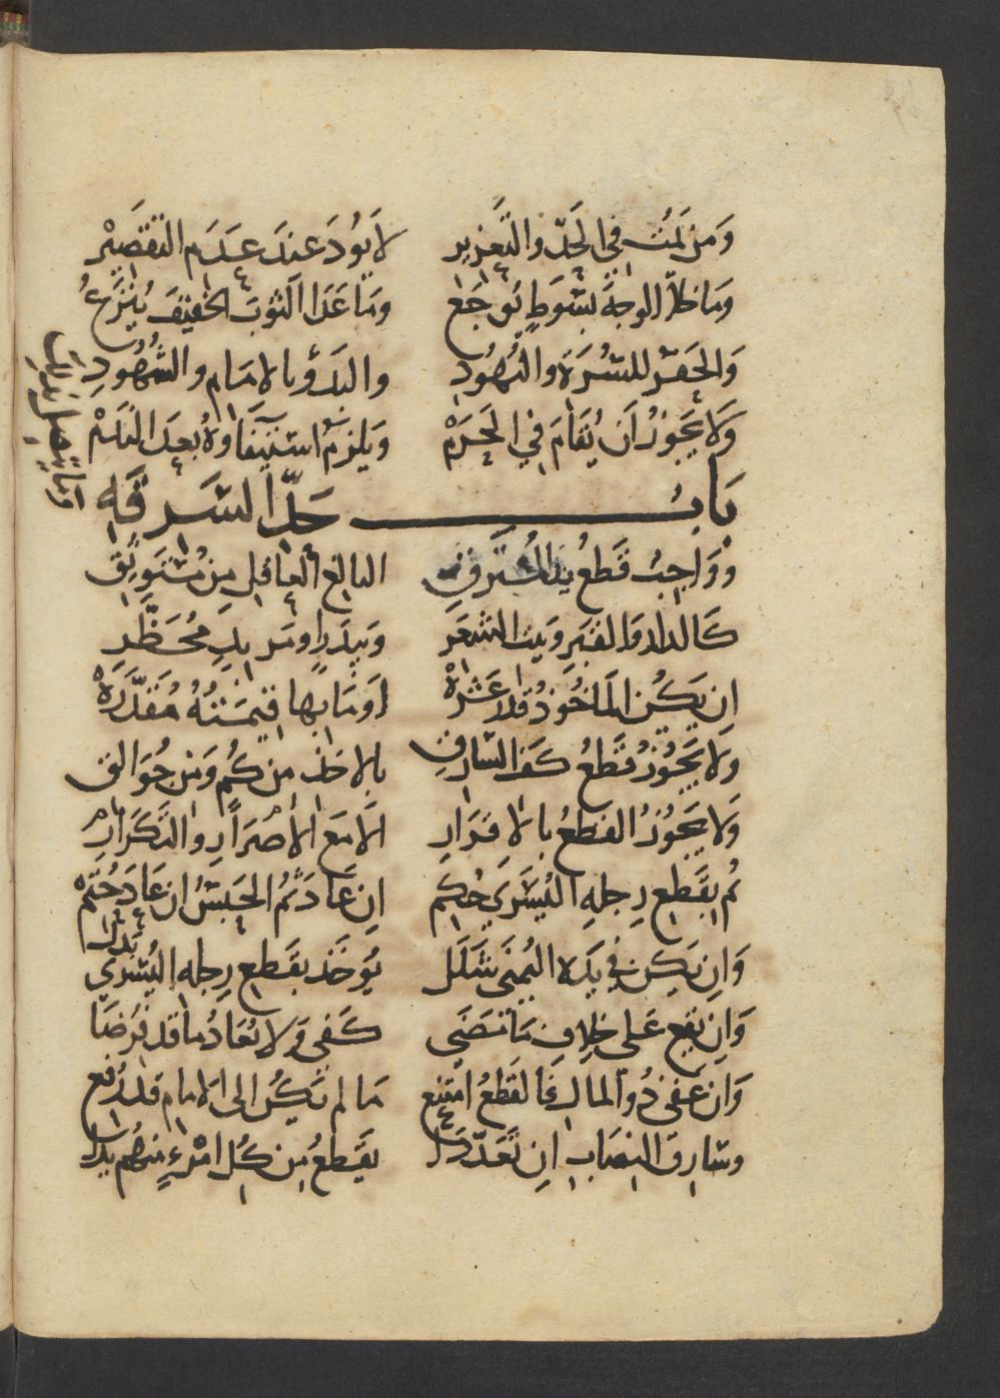 وَمَن يَمُت في الحَدّ والتَّعزير لَا يُودَ عندَ عَدَم التقصَيْر
وَمَا خلاَ الوجهَ بسَوطٍ يُوجَع ومَا عَدَا الثوبَ الخفيفَ يُنزَعُ
وَالحَفر للمَرَة واليَهُودِ والبَدؤ بالامَام والشُهُودِ
وَلَا يَجوُزُ اَن يُقَامَ في الحَرَمْ وَيلزمُ استيفَاوهُ بعدَ النَدَمْ
بَابُ حَدّ السَرقَه
وَوَاجبُ قَطعُ يَد المُسترِق البالغ العاقِل مِن
كَالدار وَالقبَرِ وَبيت الشعَر وَبيدَرٍ اومَربدٍ مُحَظَّرِ
اِن يَكُن المَاخُوذُ قدرَ عَشَرهْ اَومَا بها قيمَتُهُ مُقَدَّرَهْ
وَلَا يَجُوزُ قَطعُ كفَ السَارقِ بالاخذ مِن كُم وَمن جُوَالق
وَلَا يجوُزُ القَطعُ بالاقرَارِ الَّا مَع الاصْرَارِ والتَكرَارْ
ثُم بقَطعِ رِجلهِ اليُسَرَى حُكِم اِن عَادَ ثُمَّ الحَبسُ ان عَادَ حُتِمْ
وَاِن يَكن في يَدِه اليُمنَى شَلَل يوخَذ بقَطعِ رِجله اليُسرى بَدَل
وَاِن يَقع عَلى خِلافِ مَا قضَى كَفَى وَلا يُعَادُ ما قد فرضَا
وَان عَفَى ذُو المال فَالقَطعُ امتنع مَا لم يَكُن الى الامام قد رُفع
وسَارق النصَابِ ان تَعَدّدَا يقطعُ من كُل امرءٍ منهُم يَدا